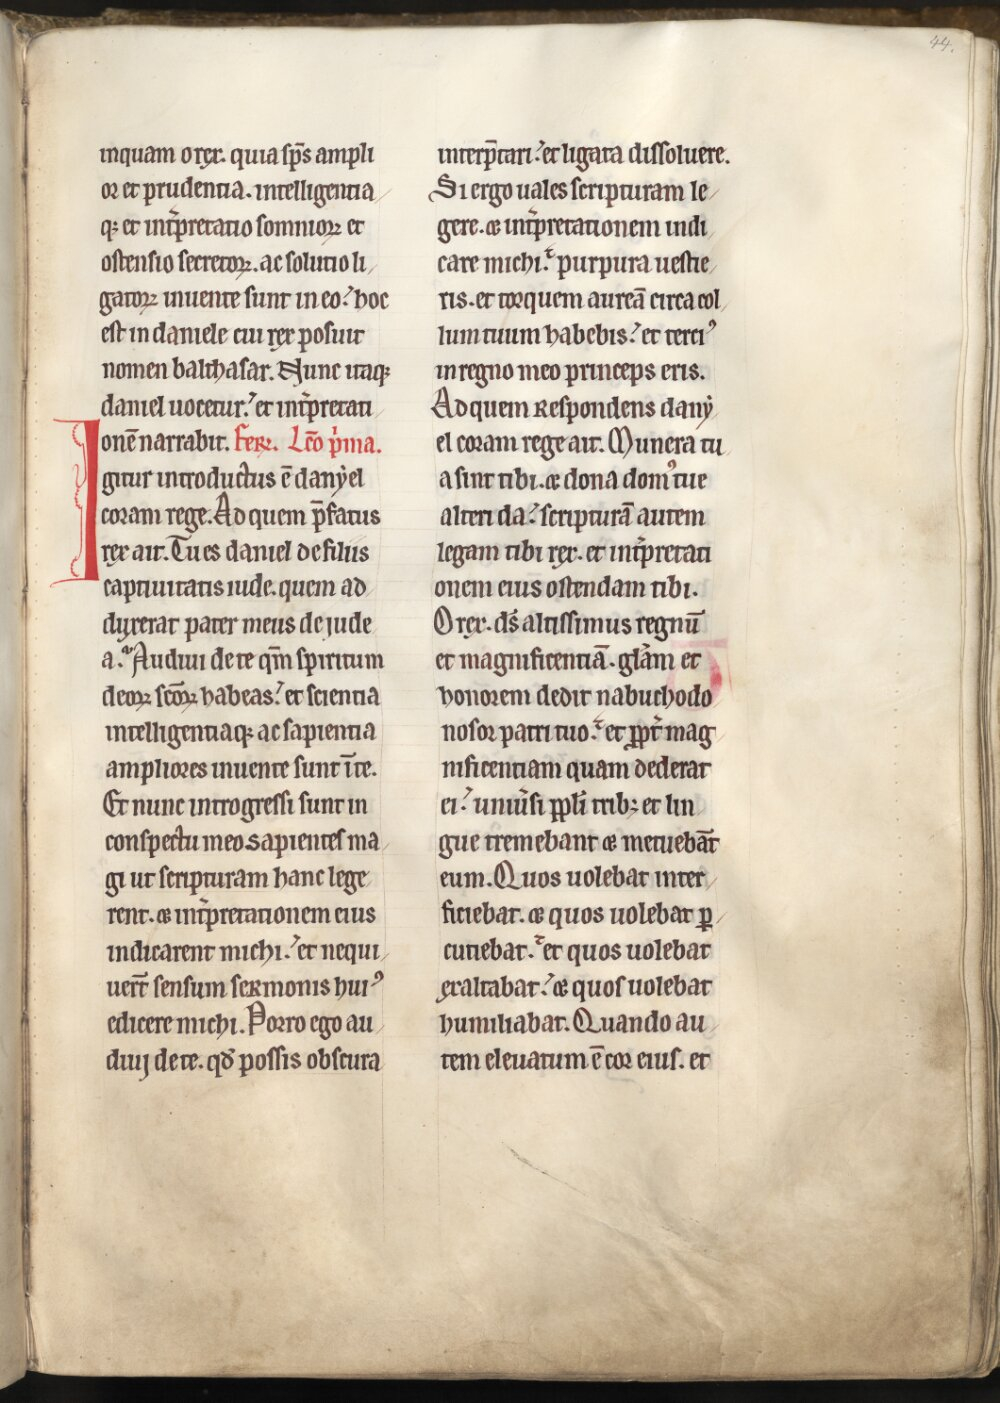 44.
inquam o rex. quia sp̄s ampli
or et prudentia. intelligentia
q; et int̄pretatio somnioꝝ et
ostensio secretoꝝ. ac solutio li
gatoꝝ inuente sunt in eo. hoc
est in daniele cui rex posuit
nomen balthasar. Nunc itaq;
daniel uocetur. et int̄pretati
onē narrabit. Fer. Lc̄o p̓ma.
Igitur introductus ē danẏel
coram rege. Ad quem p̄fatus
rex ait. Tu es daniel de filiis
captiuitatis iude. quem ad
duxerat pater meus de jude
a. Audiui de te qm̄ spiritum
deoꝝ sc̄oꝝ habeas. et scientia
intelligentiaq; ac sapientia
ampliores inuente sunt ī te.
Et nunc introgressi sunt in
conspectu meo sapientes ma
gi ut scripturam hanc lege
rent. et int̄pretationem eius
indicarent michi. et nequi
uert̄ sensum sermonis huiꝰ
edicere michi. Porro ego au
diuj de te. qd̄ possis obscura
interp̄tari. et ligata dissoluere.
Si ergo uales scripturam le
gere. et int̄pretationem indi
care michi. purpura uestie
ris. et torquem aureā circa col
lum tuum habebis. et terciꝰ
in regno meo princeps eris.
Ad quem respondens danẏ
el coram rege ait. Munera tu
a sint tibi. et dona domꝰ tue
alteri da. scripturā autem
legam tibi rex. et int̄pretati
onem eius ostendam tibi.
O rex. ds̄ altissimus regnū
et magnificentiā. glām et
honorem dedit nabuchodo
nosor patri tuo. et ꝓpt̄ mag
nificentiam quam dederat
ei. uniūsi ppl̄i trib; et lin
gue tremebant et metuebāt
eum. Quos uolebat inter
ficiebat. et quos uolebat ꝑ
cutiebat. et quos uolebat
exaltabat. et quos uolebat
humiliabat. Quando au
tem eleuatum ē cor eius. et